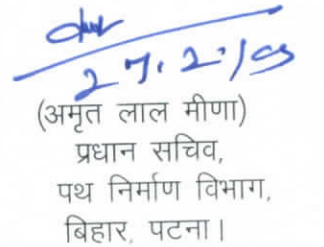 27.2.
(अमृत लाल मीणा)
प्रधान सचिव,
पथ निर्माण विभाग,
बिहार, पटना।